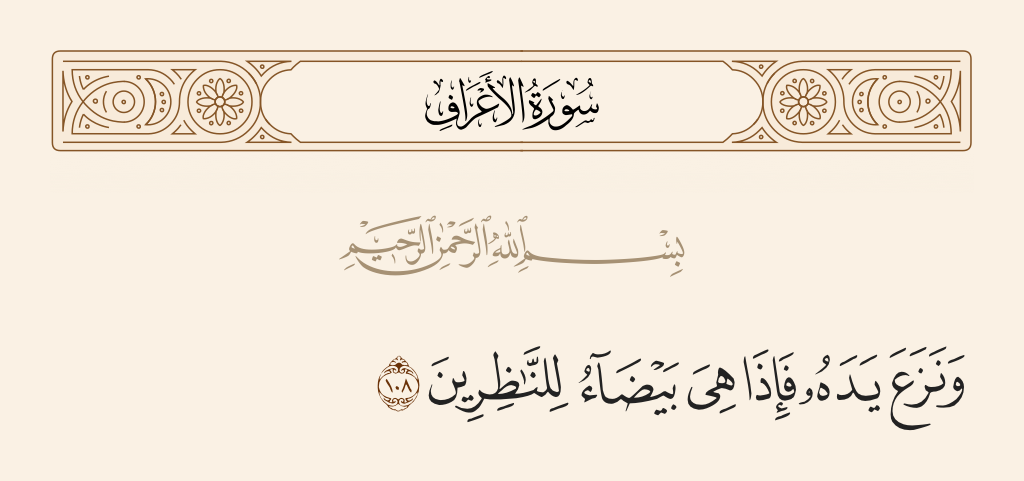 سُورَةُ الأَعْرَافِ
بِسْمِ ٱللَّهِ ٱلرَّحْمَٰنِ ٱلرَّحِيمِ
وَنَزَعَ يَدَهُۥ فَإِذَا هِىَ بَيْضَآءُ لِلنَّٰظِرِينَ ١٠٨